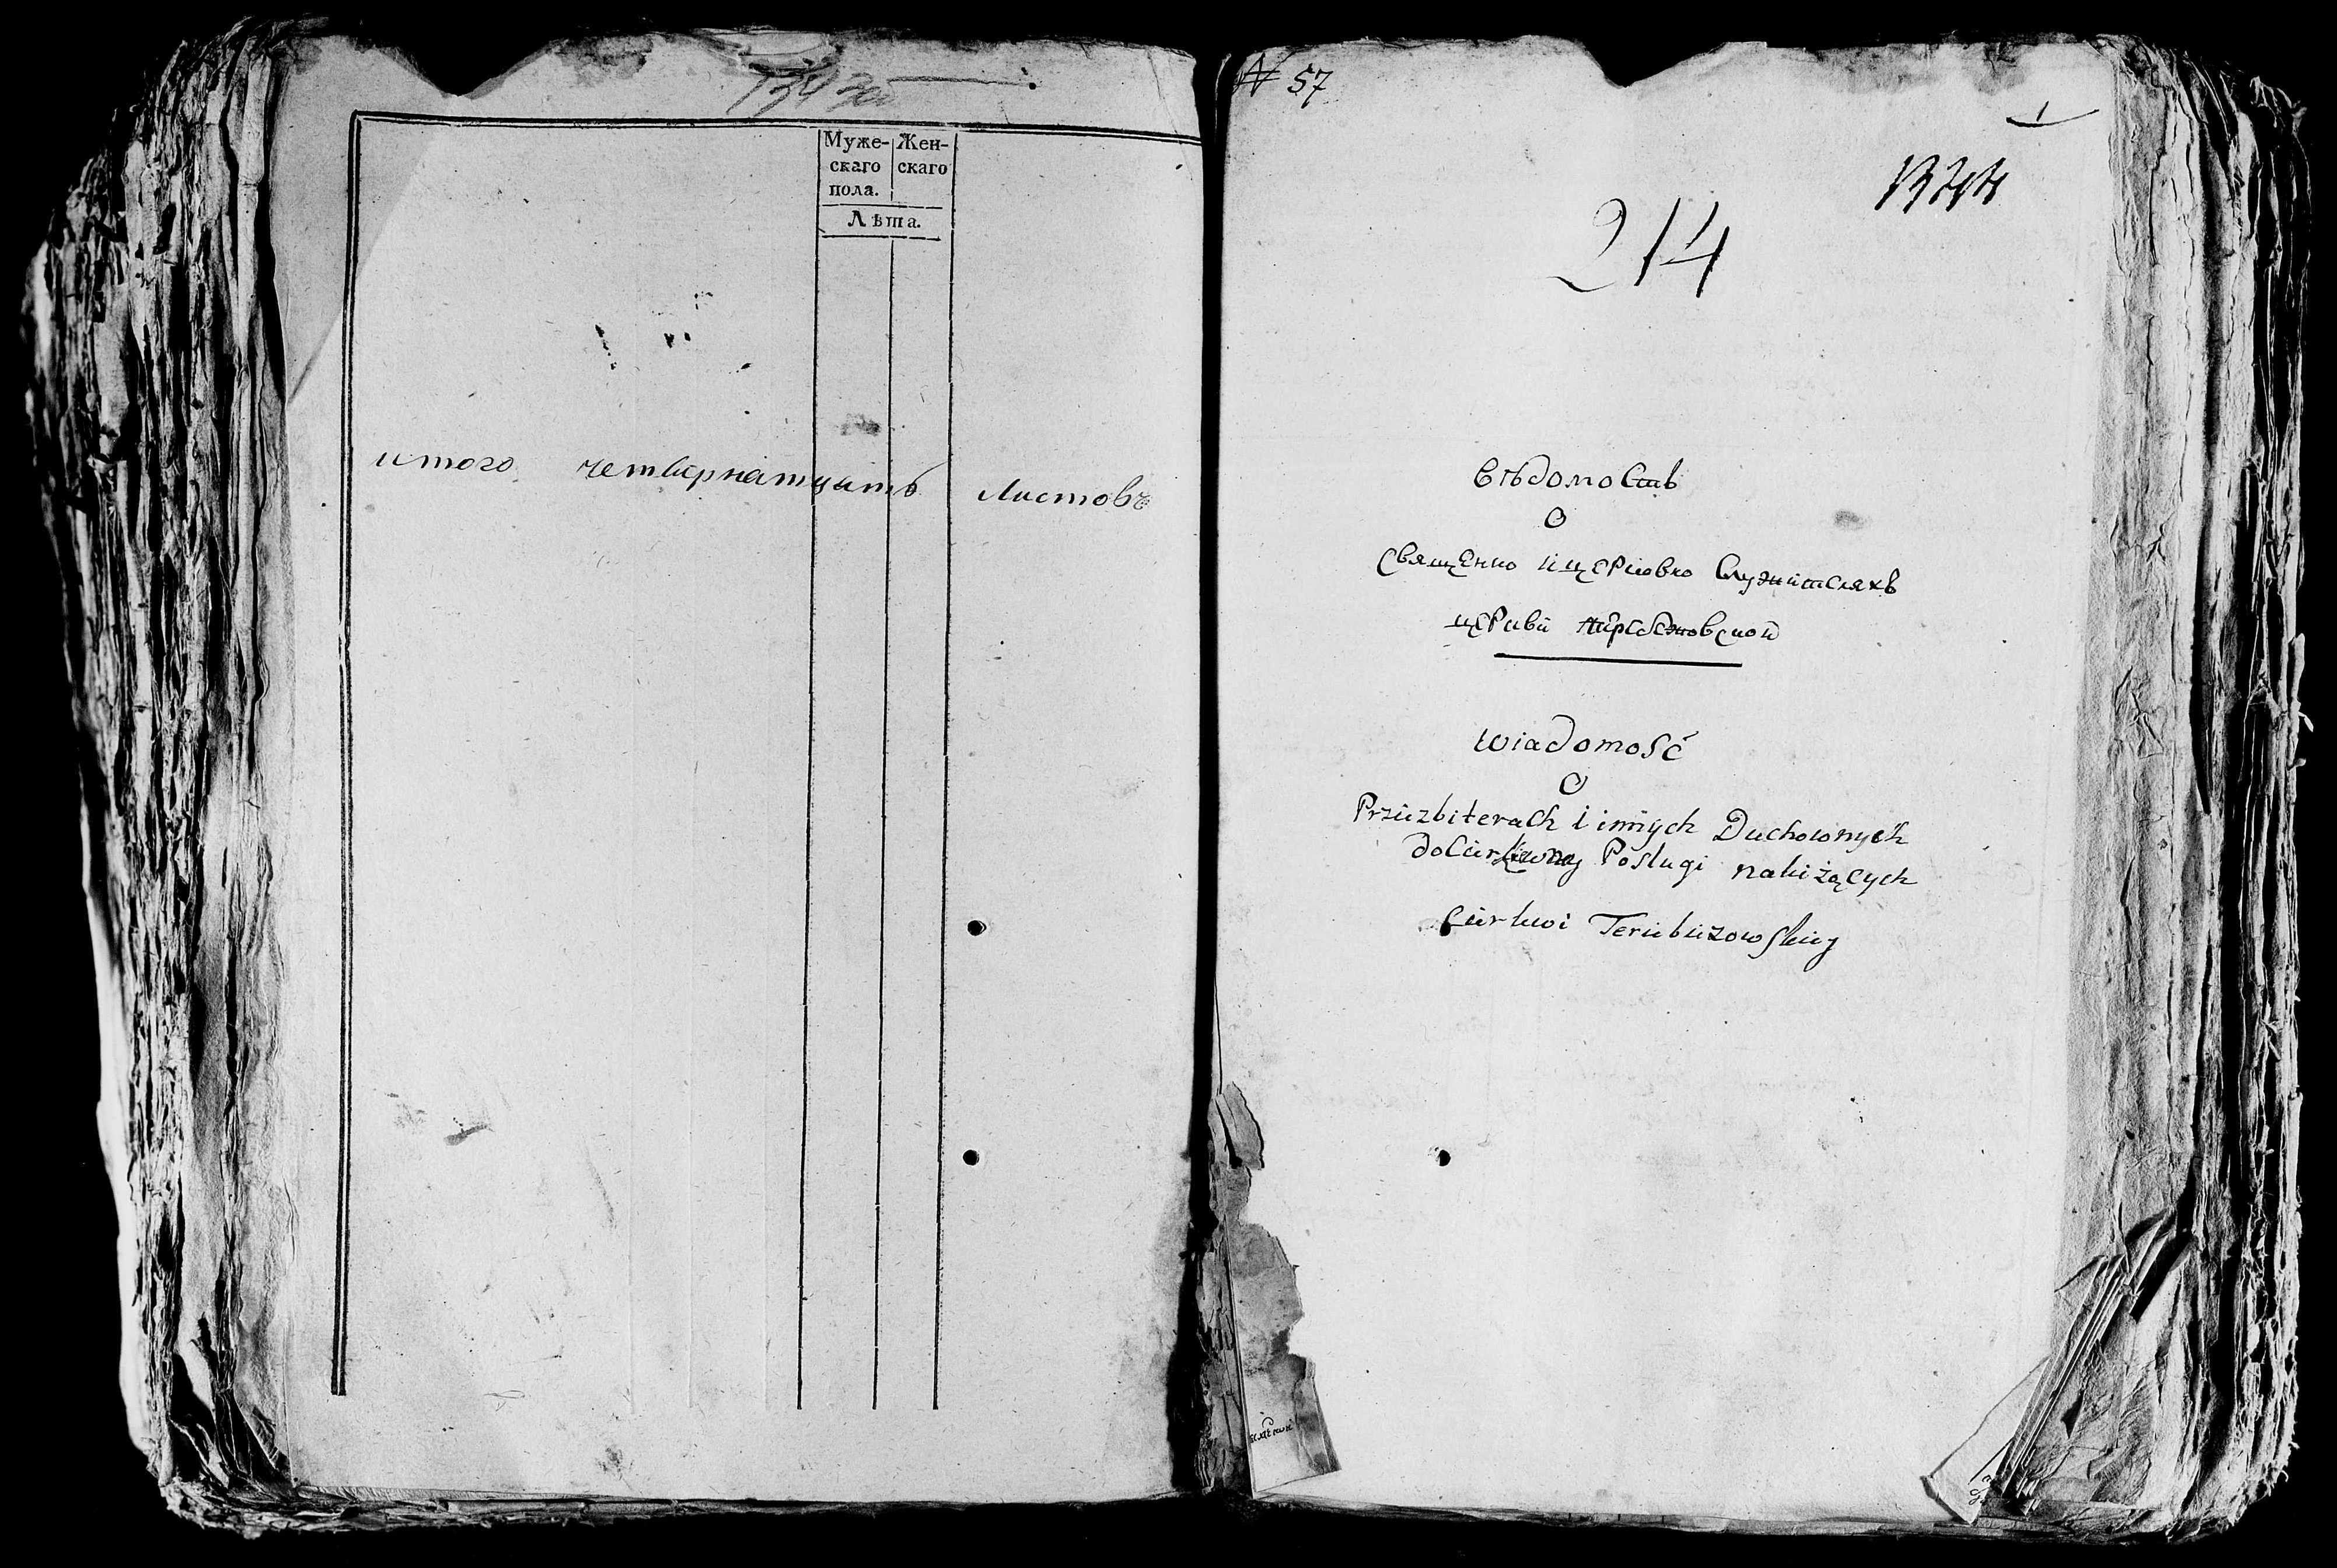 Муже- Жен-
скаго скаго
пола.
Лѣта.
итого четвернатцать листовъ
№ 57
1
214
вѣдомость
О
священно и церковно служителяхъ
церкви теребежовской
Wiadomość
O
Prezbiterach i innych Duchownych
do Cerkewney Posługi należących
Cerkwi Terebeżowskiey